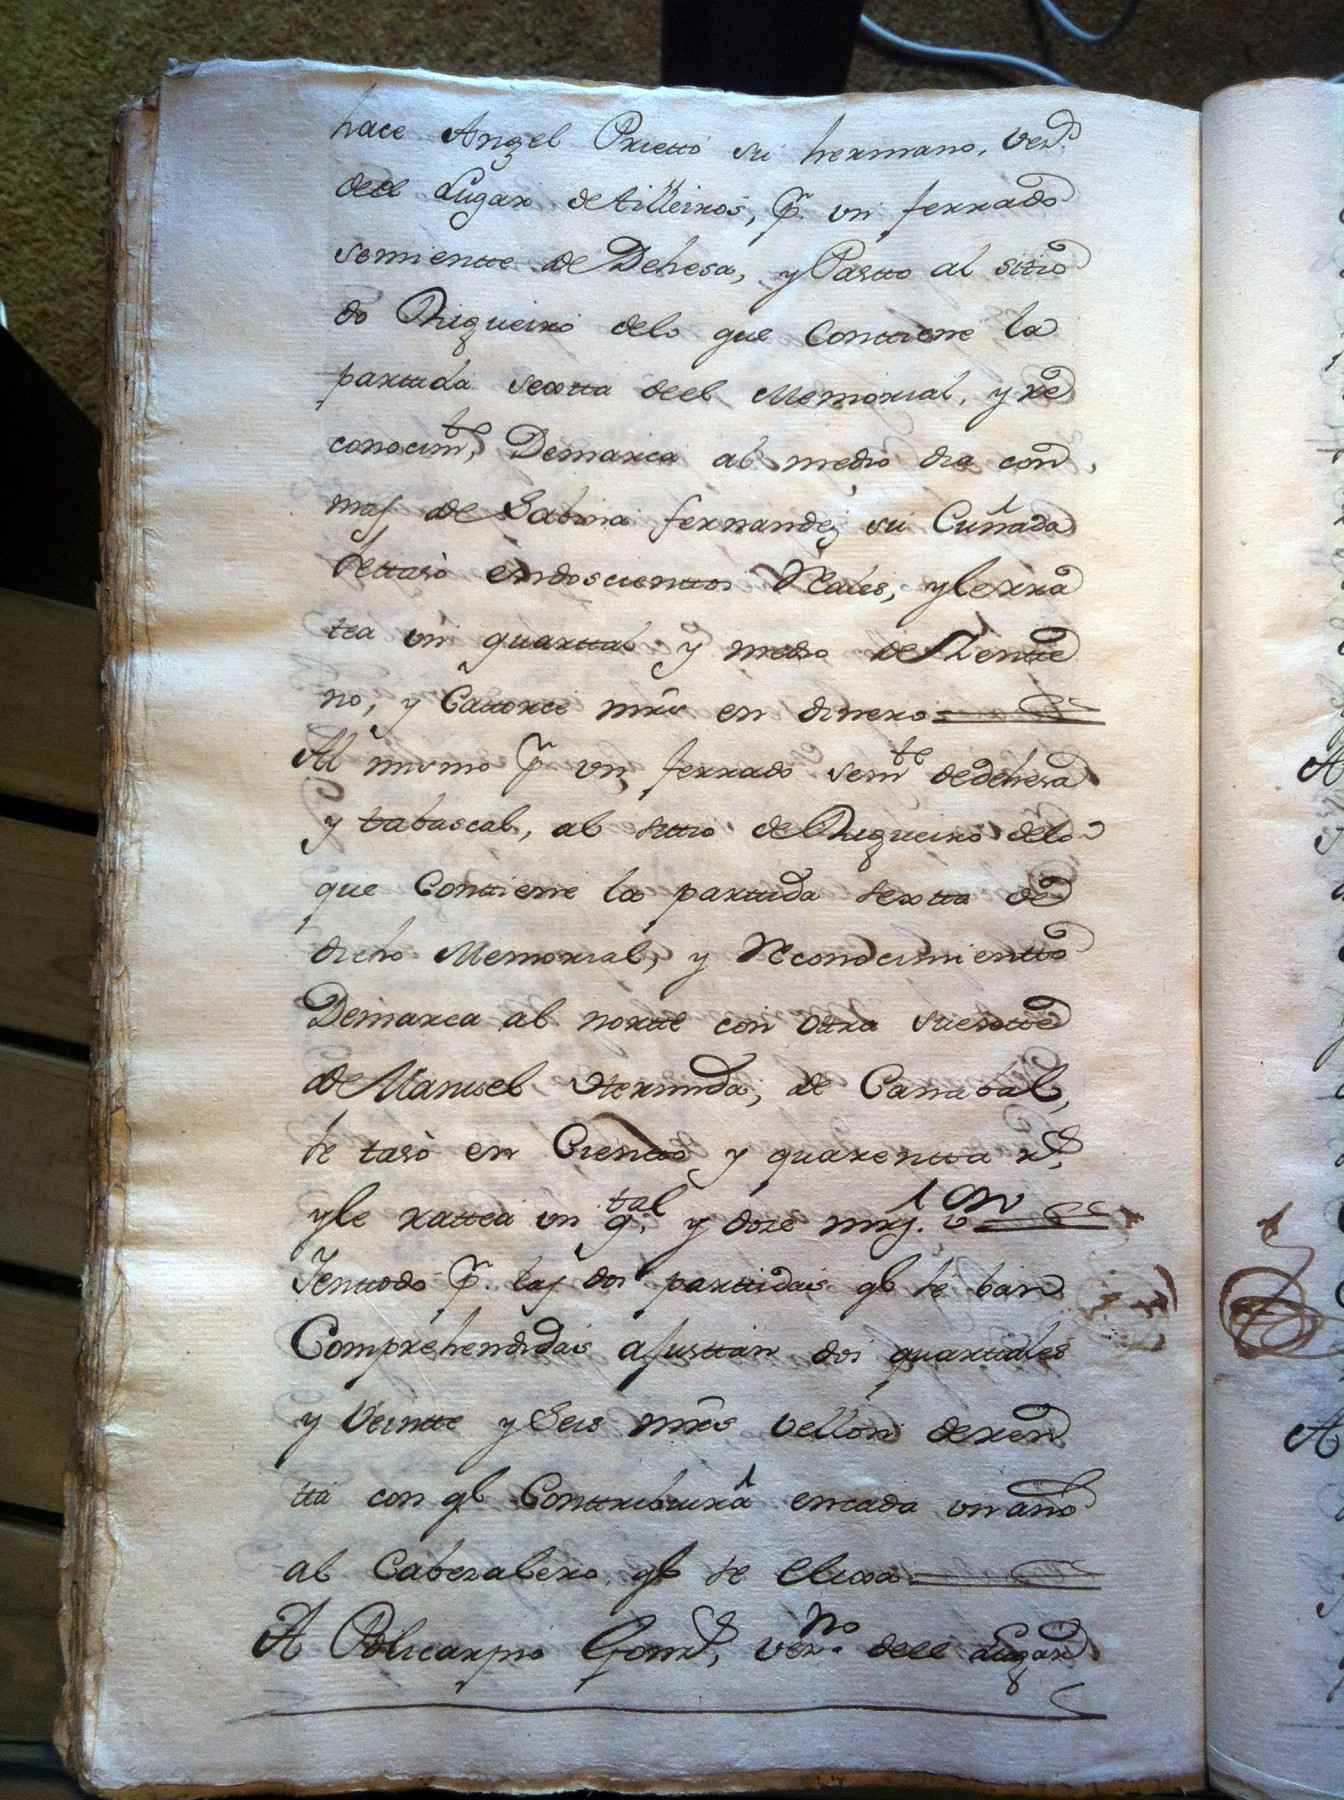 hace Angel Prietto su hermano, vez.º
deel Lugar de Tilleiros, p.r un ferrado
semiente de Dehesa, y Pastto al sitio
do Rigueiro delo que Conttiene la
partida sextta deel Memorial, y re
conocim.to, Demarca al medio dia con
mas de Sabina fernandez su Cuñada
settasò en doscienttos Reales, yle rra
tea un quarttal y medio de Zentte
no, y Cattorce mrs en dinero
Al mismo p.r un ferrado sem.te de dehesa
y tabascal, al sittio de Rigueiro delo
que Conttiene la parttida sextta de
dicho Memorial, y Reconocimientto
Demarca al nortte con otra suertte
de Manuel Oterinda, de Canabal,
se tasò en Cientto y quarentta r.s
yle rattea un q.tal y doze mrs. v.on
Yenttodo p.r las dos parttidas q.e se ban
Comprehendidas ajusttan dos quarttales
y Veintte y Seis mrs vellon de ren
tta con q.e Conttribuirá en cada un año
al Cabezalero q.e se Elixa
A Policarpio Gonz.s, vez.no deel Lugar